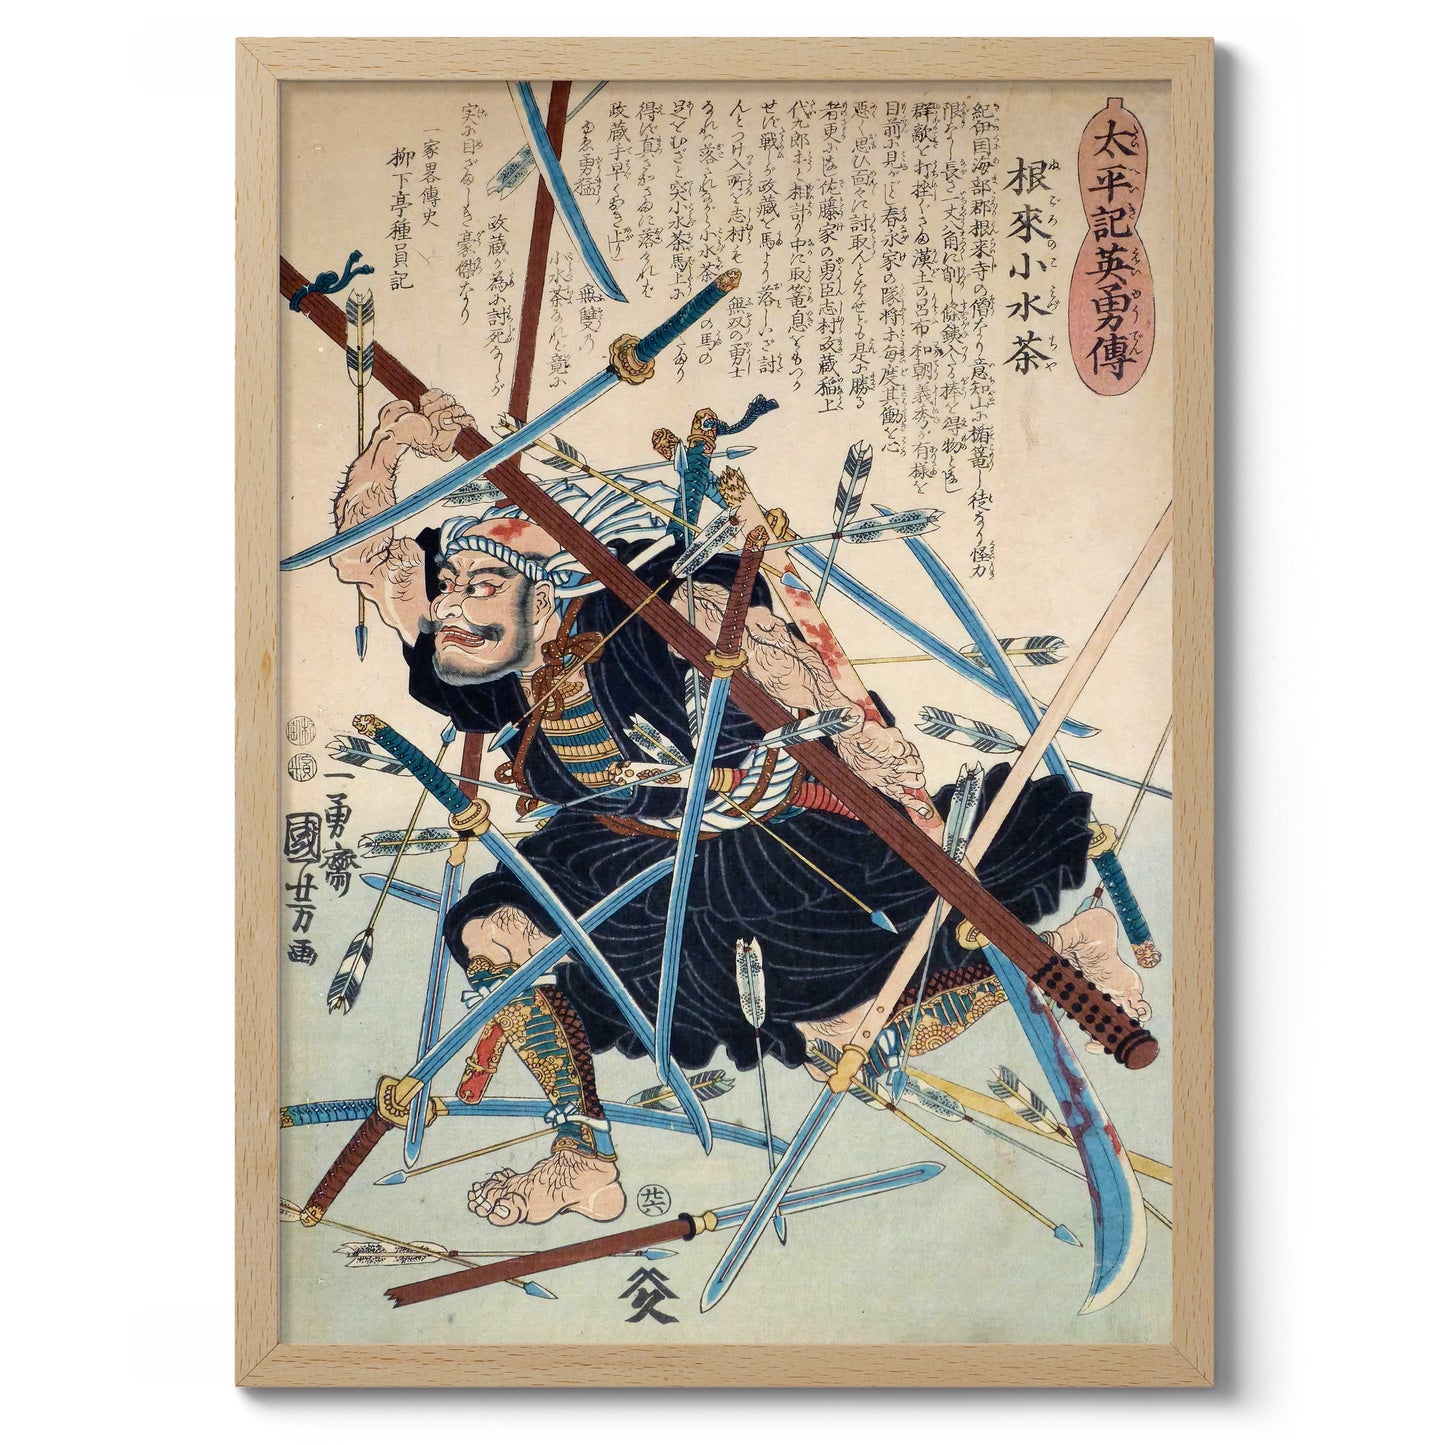 太平記英勇傳
根來小水茶
紀伊国海部郡根来寺の僧なり意知山に楯篭し徒なり怪力
限なし長さ一丈八角に削條鉄入たる棒を得物と
群敵を打挫くさま漢土の呂布和朝義秀が有様を
目前に見がごと春永家の隊将お毎度其働を心
悪く思ひ面々に討取んとなせども是に勝る
者更になし佐藤家の勇臣志村政蔵稲上
代九郎ホと相計り中に取篭息をもつか
せず戦しが政蔵を馬より落しいざ討
んとつけ入所を志村も無双の勇士
なれバ落されながら小水茶の馬の
足をむざと突小水茶馬上に
得ず真さかさまに落るを
政蔵手早くおき上り
勇猛無雙の
小水茶なれど竟に
政蔵が為に討死なしゝが
豪傑なり
一家畧傳史
柳下亭種員記
村田
一勇齋
國芳画
廿六